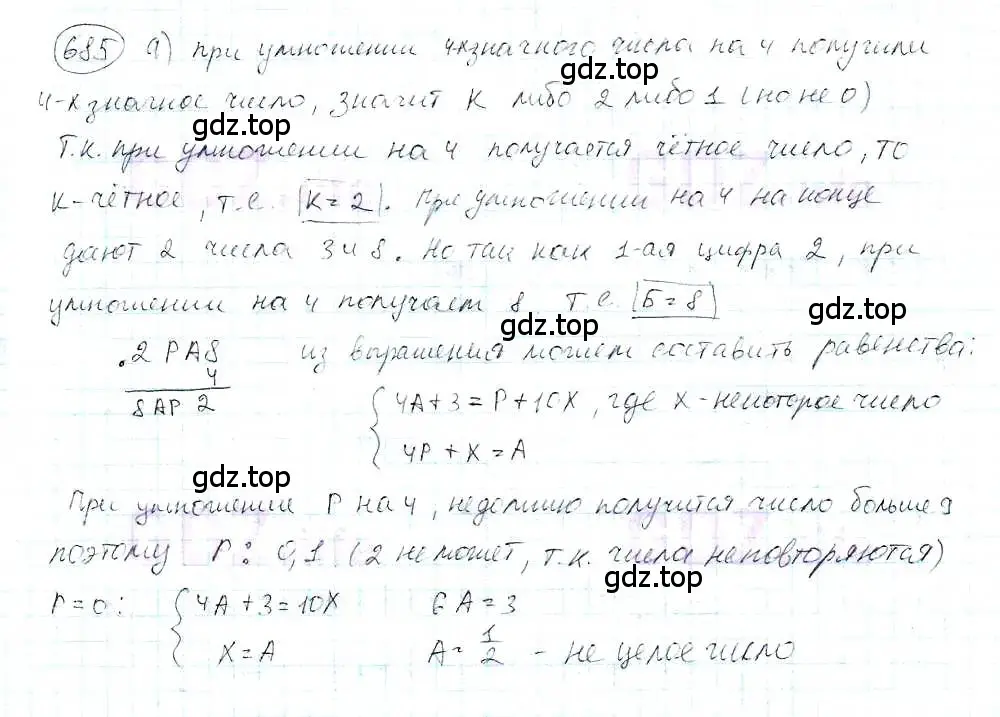 685 а) при умножении 4хзначного числа на 4 получили
4-х значное число, значит К либо 2 либо 1 (но не 0)
gdz.top
gdz.top
Т.к. при умножении на 4 получается чётное число, то
К-чётное, т.е. К=2. При умножении на 4 на конце
gdz.top
дают 2 числа 3 и 8. Но так как 1-ая цифра 2, при
умножении на 4 получаем 8, т.е. Б=8
gdz.top
.2 РА8 из выражения можем составить равенства:
4
8АР 2
4А+3=Р+10Х, где Х-некоторое число
4Р+Х=А
gdz.top
При умножение Р на 4, не должно получится число больше 9
поэтому Р: 0,1 (2 не может, т.к. числа не повторяются)
gdz.top
Р=0: 4А+3=10Х 6А=3
Х=А А=1/2 - не целое число
gdz.top